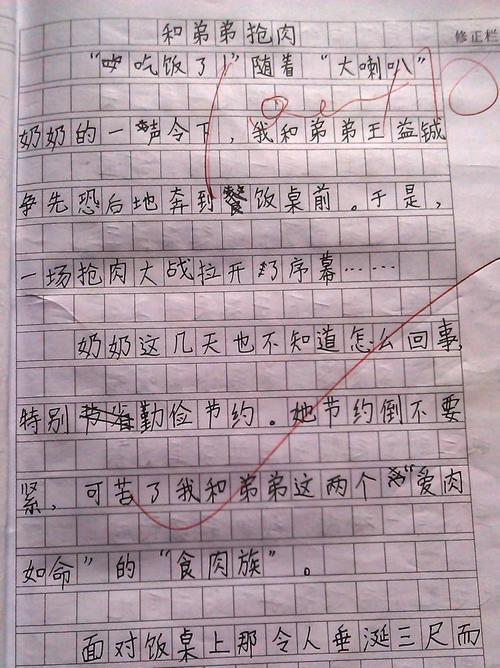 和弟弟抢肉
修正栏
“吃饭了！”随着“大喇叭”
奶奶的一声令下，我和弟弟王益铖
争先恐后地奔到饭桌前。于是，
一场抢肉大战拉开了序幕……
奶奶这几天也不知道怎么回事，
特别勤俭节约。她节约倒不要
紧，可苦了我和弟弟这两个“爱肉
如命”的“食肉族”。
面对饭桌上那令人垂涎三尺而